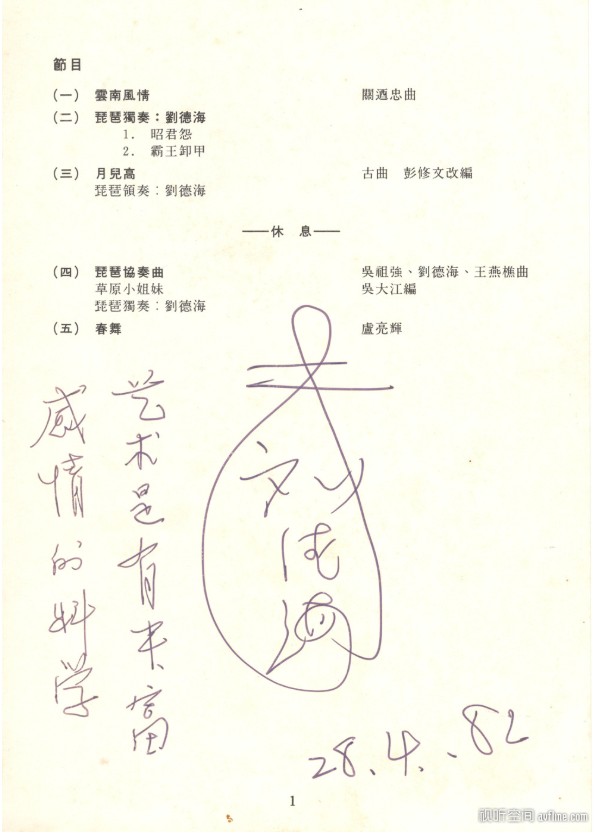 1
節目
(一) 雲南風情 關迺忠曲
(二) 琵琶獨奏：劉德海
1. 昭君怨
2. 霸王卸甲
(三) 月兒高 古曲 彭修文改編
琵琶領奏：劉德海
——休 息——
(四) 琵琶協奏曲 吳祖強、劉德海、王燕樵曲
草原小姐妹 吳大江編
琵琶獨奏：劉德海
(五) 春舞 盧亮輝
艺术是有丰富
感情的科学
刘德海
28.4.82
1
视听空间 avfline.com